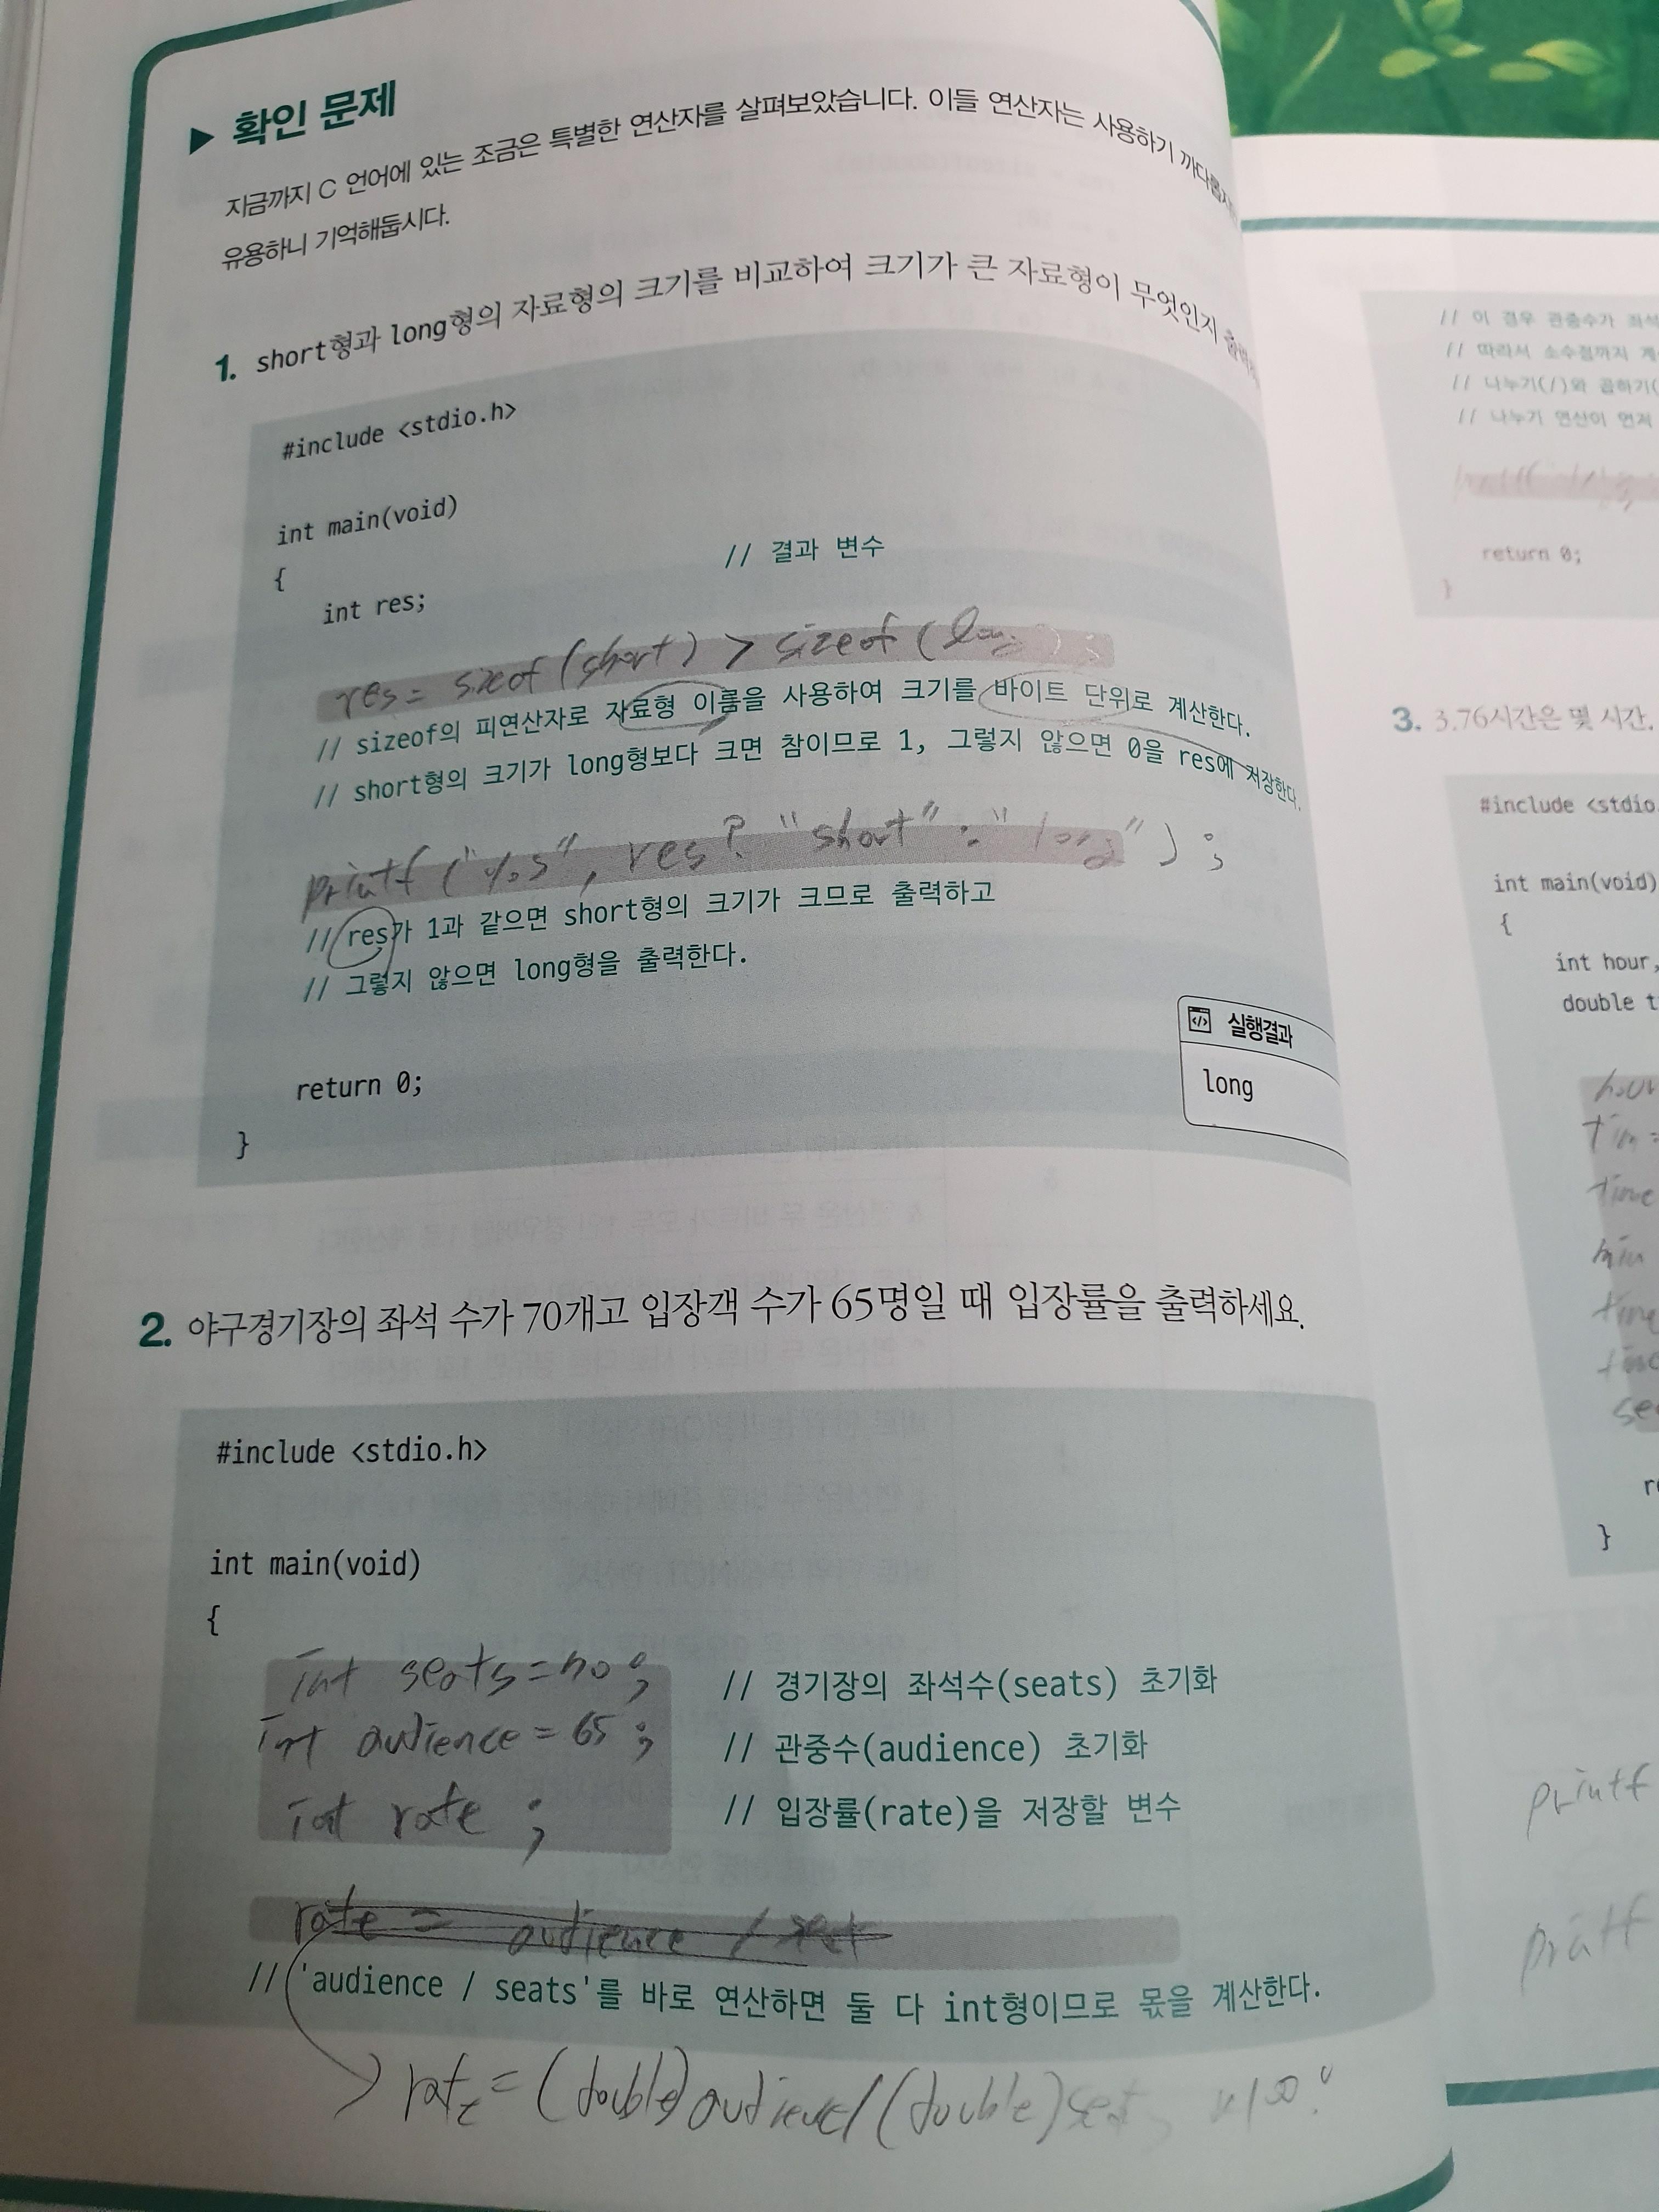 ▶ 확인 문제
지금까지 C 언어에 있는 조금은 특별한 연산자를 살펴보았습니다. 이들 연산자는 사용하기
유용하니 기억해둡시다.
1. short형과 long형의 자료형의 크기를 비교하여 크기가 큰 자료형이 무엇인지
#include <stdio.h>
int main(void)
{
int res; // 결과 변수
res = sizeof (short) > sizeof (long) ;
// sizeof의 피연산자로 자료형 이름을 사용하여 크기를 바이트 단위로 계산한다.
// short형의 크기가 long형보다 크면 참이므로 1, 그렇지 않으면 0을 res에 저장한다.
printf ("%s", res ? "short" : "long") ;
// res가 1과 같으면 short형의 크기가 크므로 출력하고
// 그렇지 않으면 long형을 출력한다.
return 0;
}
실행결과
long
2. 야구경기장의 좌석 수가 70개고 입장객 수가 65명일 때 입장률을 출력하세요.
#include <stdio.h>
int main(void)
{
int seats = 70 ; // 경기장의 좌석수(seats) 초기화
int audience = 65 ; // 관중수(audience) 초기화
int rate ; // 입장률(rate)을 저장할 변수
rate = audience /
// 'audience / seats'를 바로 연산하면 둘 다 int형이므로 몫을 계산한다.
rate = (double) audience / (double)
// 이 경우 관중수가 좌석
// 따라서 소수점까지
// 나누기(/)와 곱하기(
// 나누기 연산이 먼저
return 0;
}
3. 3.76시간은 몇 시간.
#include <stdio.
int main(void)
{
int hour,
double t
time
min
}
printf
printf